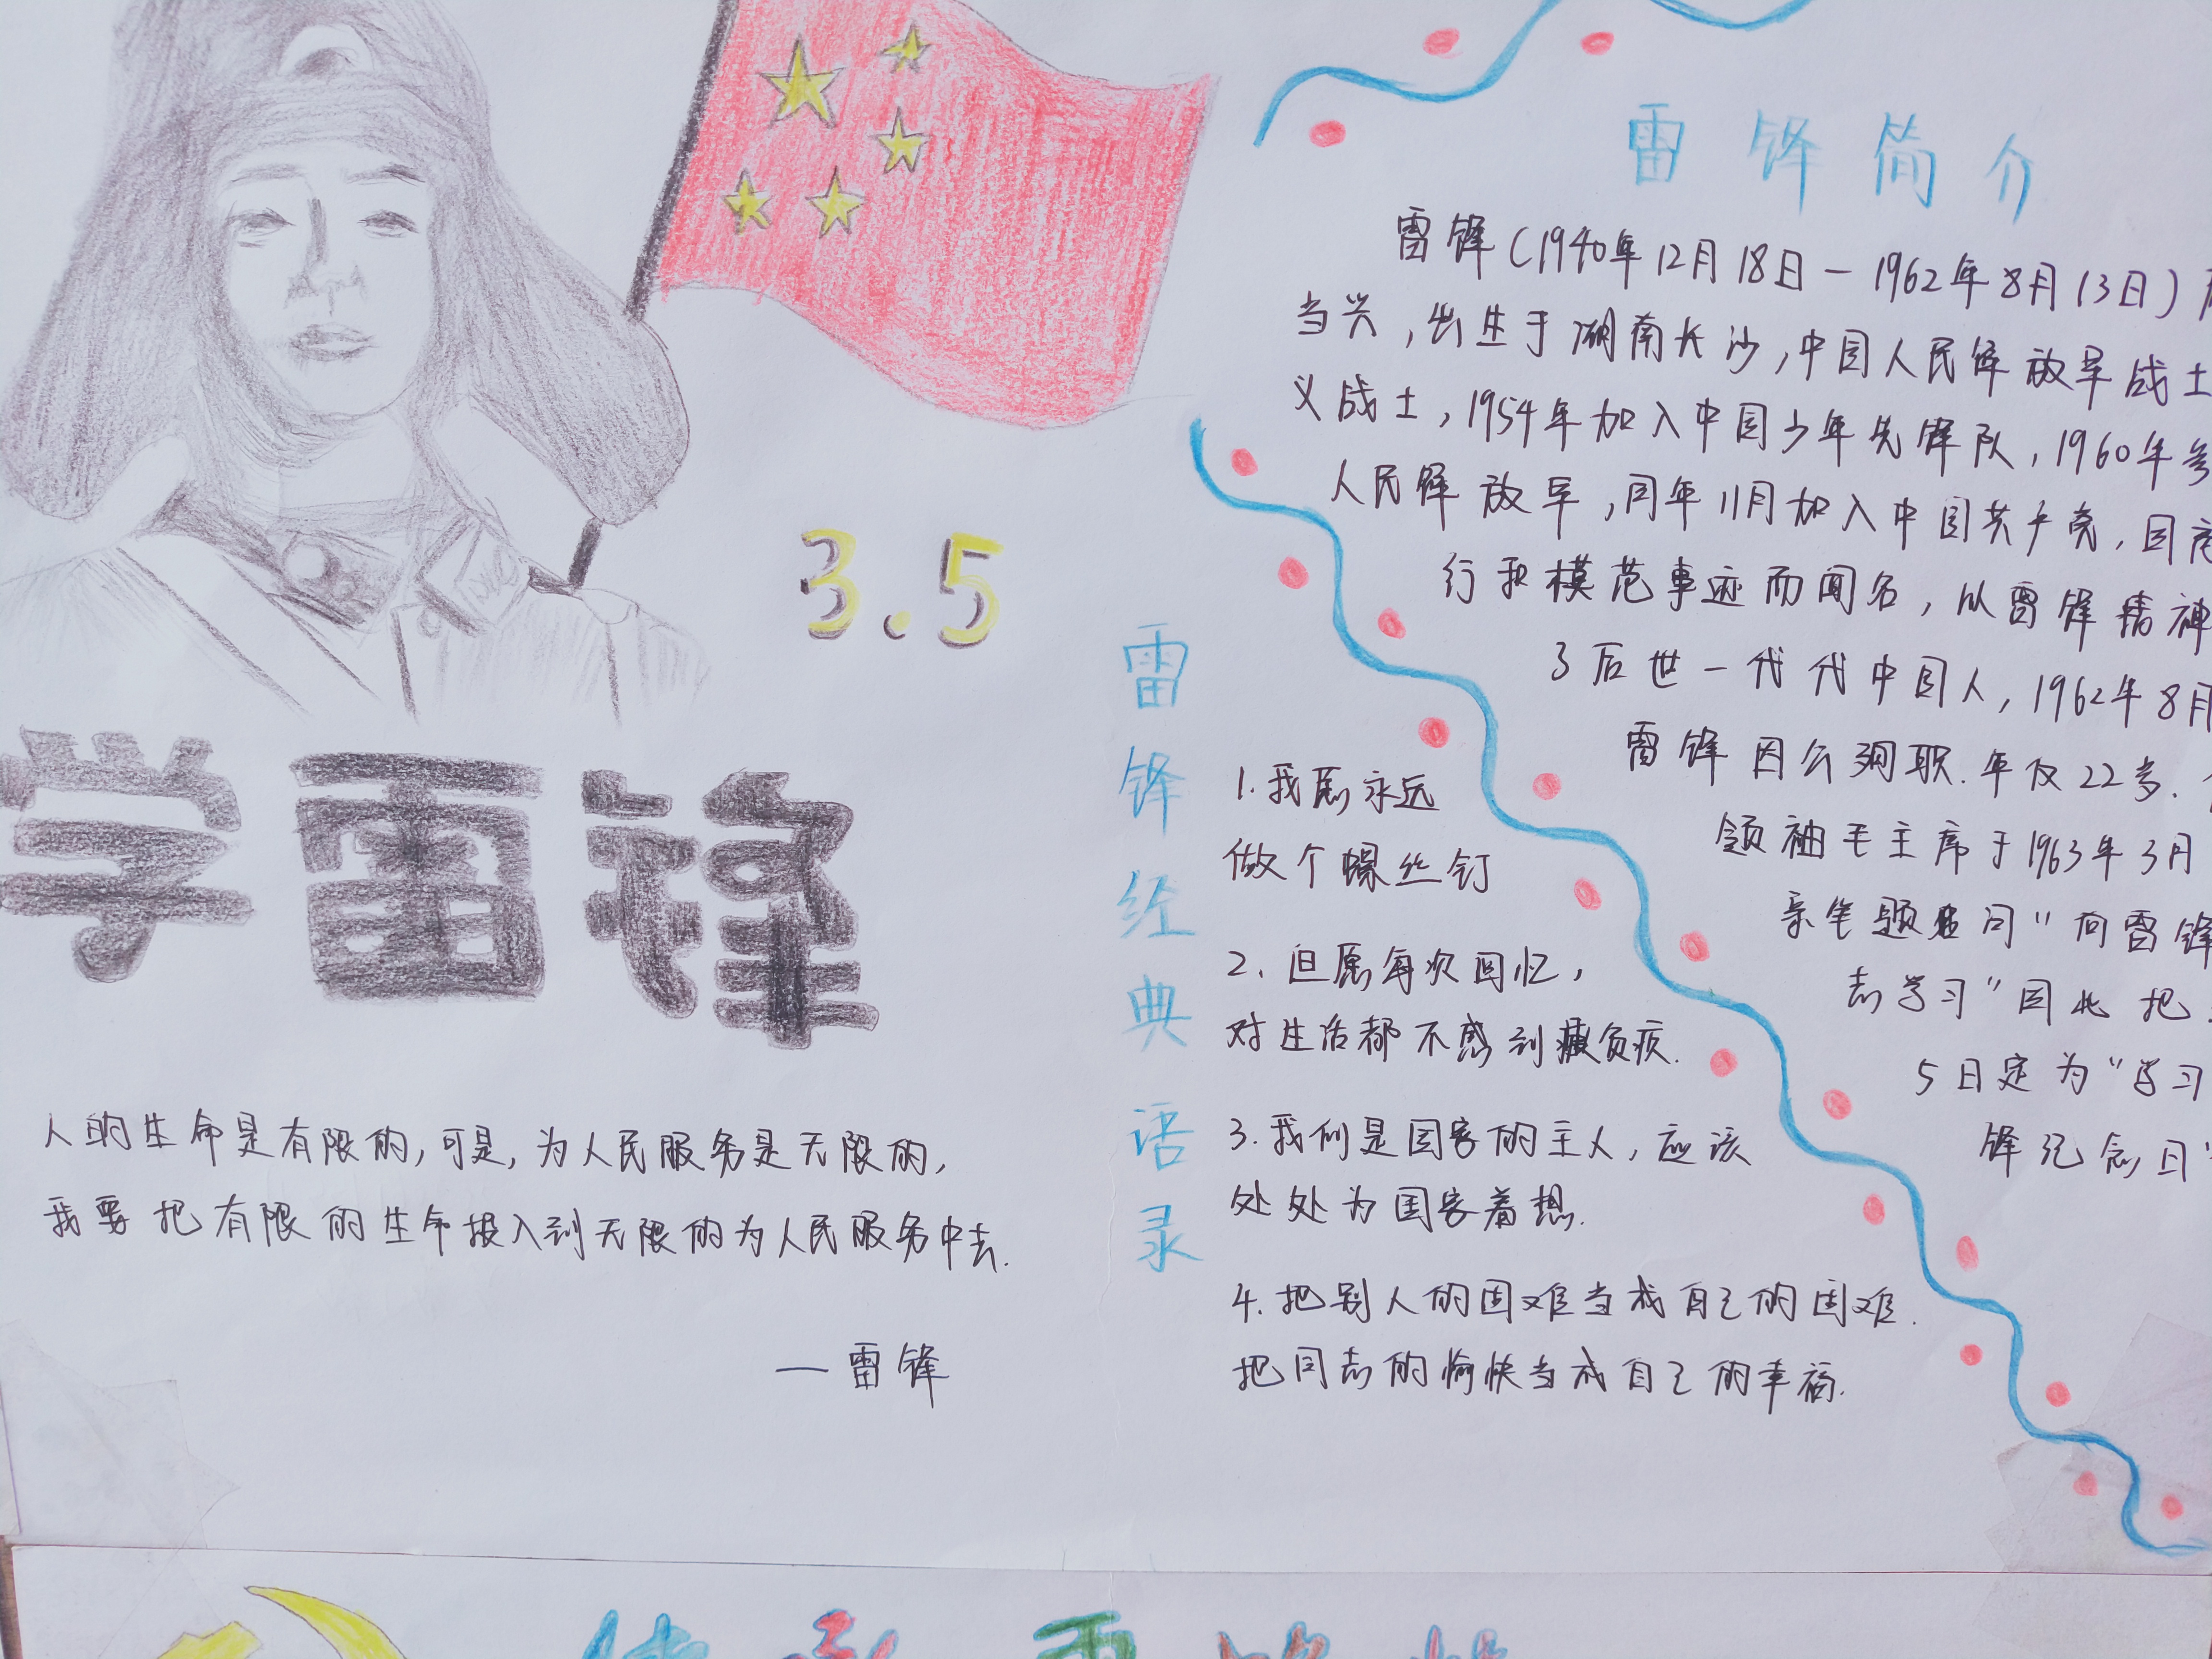 3.5
学雷锋
人的生命是有限的,可是,为人民服务是无限的,
我要把有限的生命投入到无限的为人民服务中去.
一雷锋
雷锋经典语录
1.我愿永远
做个螺丝钉
2.但愿每次回忆,
对生活都不感到负疚.
3.我们是国家的主人,应该
处处为国家着想.
4.把别人的困难当成自己的困难.
把同志的愉快当成自己的幸福.
雷锋简介
雷锋(1940年12月18日－1962年8月13日)
当兴,出生于湖南长沙,中国人民解放军战士
义战士,1954年加入中国少年先锋队,1960年参
人民解放军,同年11月加入中国共产党,因
行和模范事迹而闻名,从雷锋精神
了后世一代代中国人,1962年8月
雷锋因公殉职.年仅22岁.
领袖毛主席于1963年3月
亲笔题词"向雷锋
志学习"因此把
5日定为"学习
锋纪念日"
传承雷锋